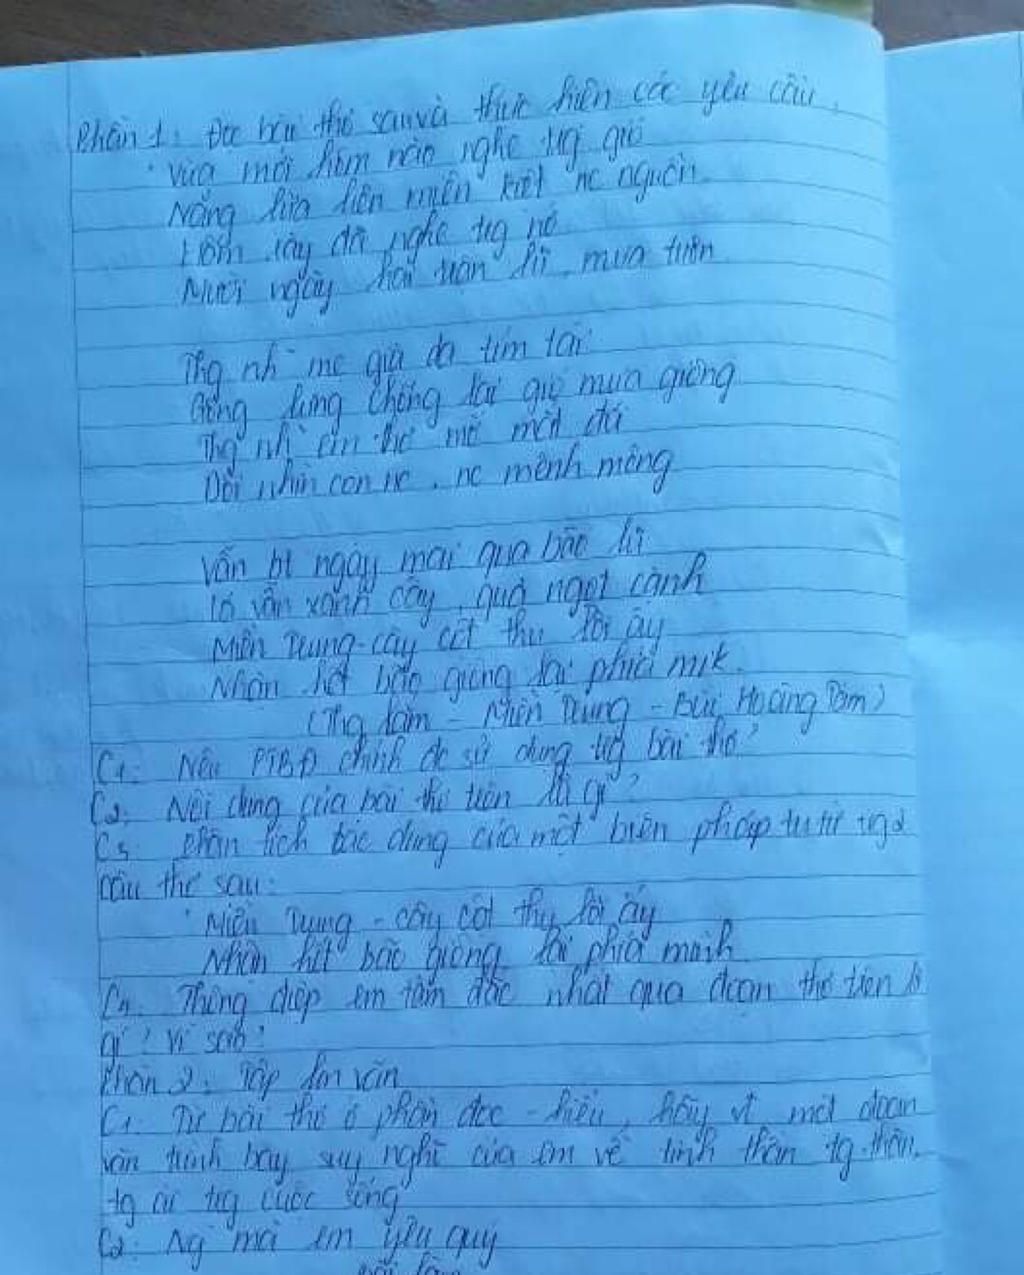 Phần 1: Đọc bài thơ sau và thực hiện các yêu cầu.
Vừa mới hôm nào nghe trg gió
Nắng lửa liên miên kiệt nc nguồn
Hôm rày đã nghe trg nó
Mười ngày hai trận lũ, mưa tuôn
Thg nh mẹ già da tím tái
Gồng lưng chống lại gió mưa giông
Thg nh em thơ mờ mắt đá
Dõi nhìn con nc, nc mênh mông
Vẫn bt ngày mai qua bão lũ
Lá vẫn xanh cây, quả ngọt cành
Miền Trung - cây cột thu lôi ấy
Nhận hết bão giông lại phía mik.
(Thg lắm - Miền Trung - Bùi Hoàng Tám)
C1: Nêu PTBĐ chính đc sử dụng trg bài thơ?
C2: Nội dung của bài thơ trên là gì?
C3: Phân tích tác dụng của một biện pháp tu từ trg 2
câu thơ sau:
Miền Trung - cây cột thu lôi ấy
Nhận hết bão giông lại phía mình
C4: Thông điệp em tâm đắc nhất qua đoạn thơ trên là
gì? Vì sao?
Phần 2: Tập làm văn
C1: Từ bài thơ ở phần đọc - hiểu, hãy vt một đoạn
văn trình bày suy nghĩ của em về tinh thần tg thân,
tg ái trg cuộc sống
C2: Ng mà em yêu quý